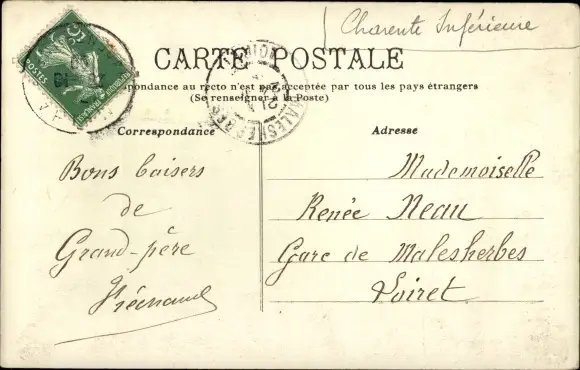 Charente Inférieure
CARTE POSTALE
pondance au recto n'est pas acceptée par tous les pays étrangers
(Se renseigner à la Poste)
Correspondance
Adresse
Bons baisers
de
Grand-père
Mademoiselle
Renée Neau
Gare de Malesherbes
Loiret
POSTES
5
MALESHERBES